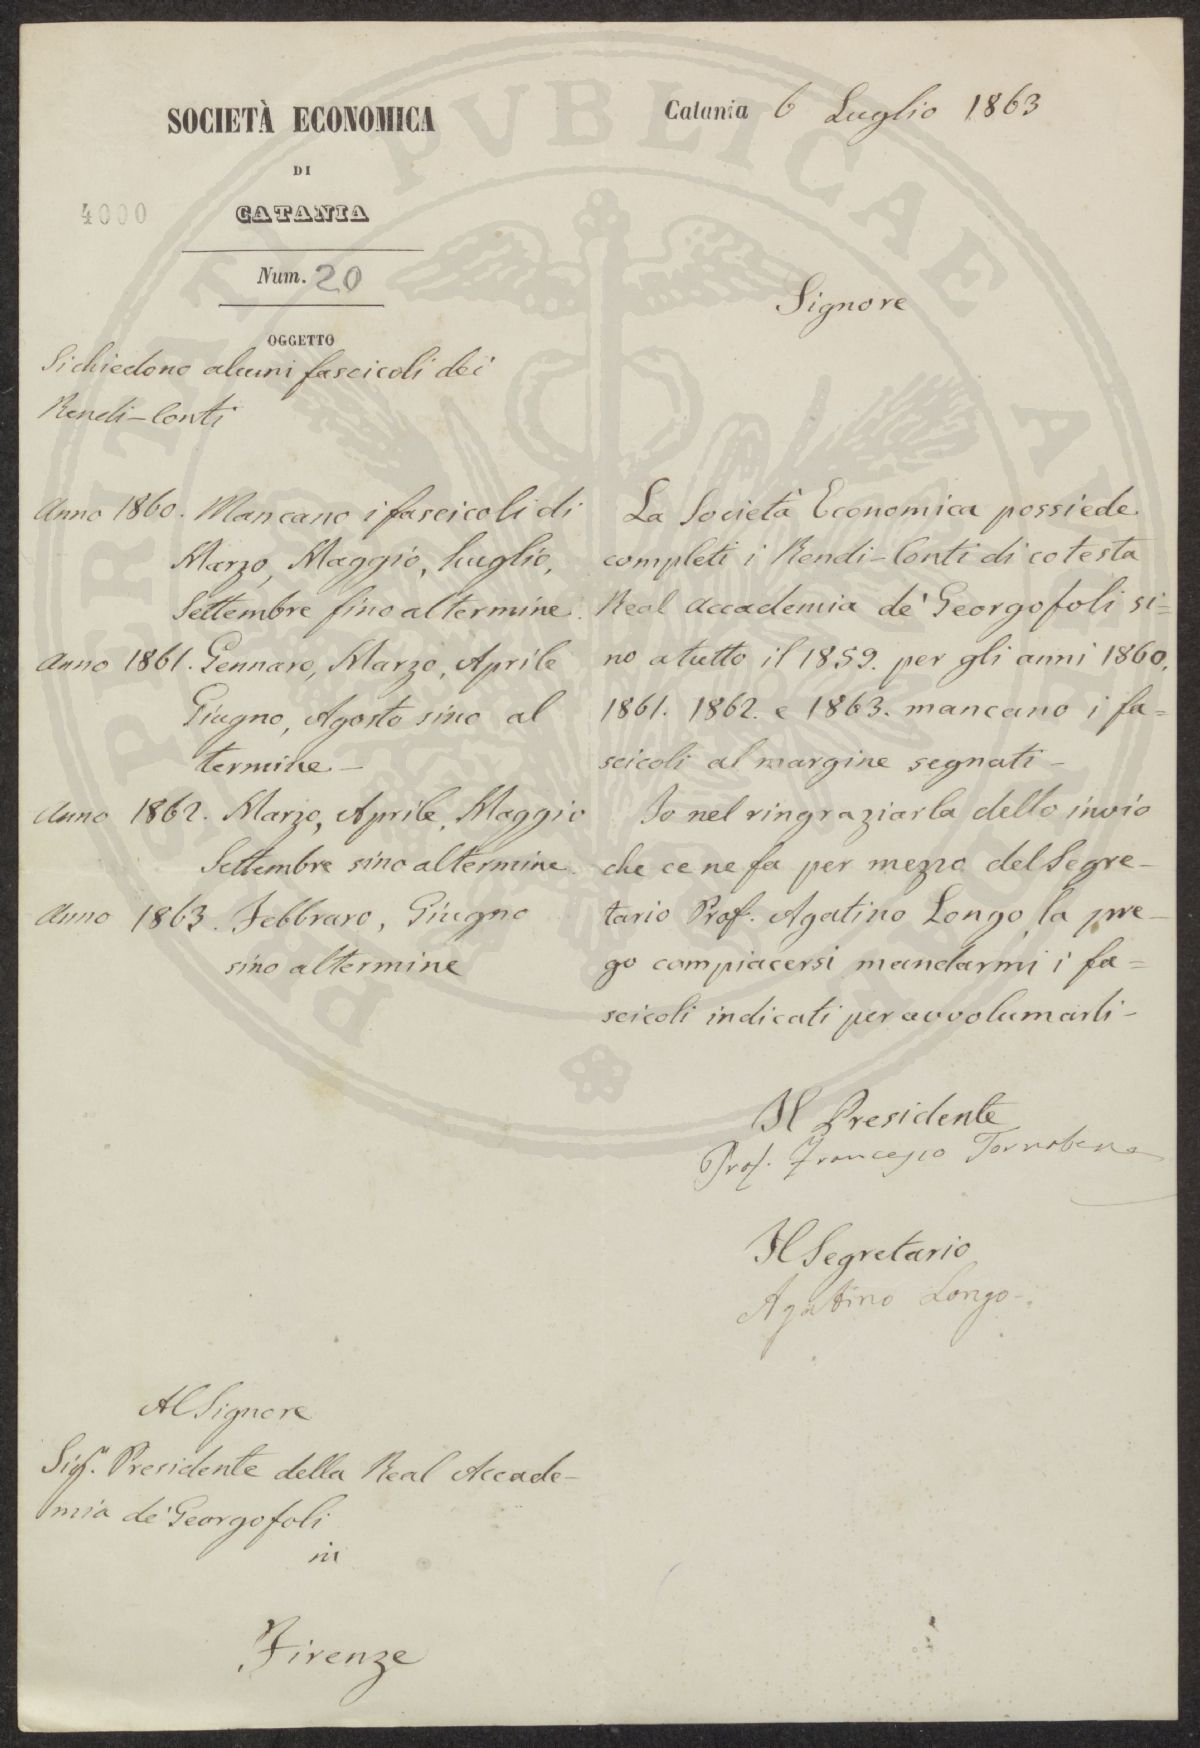 SOCIETÀ ECONOMICA
DI
CATANIA
4000
Num. 20
OGGETTO
Si chiedono alcuni fascicoli dei
Rendi-Conti
Anno 1860. Mancano i fascicoli di
Marzo, Maggio, Luglio,
Settembre fino al termine.
Anno 1861. Gennaro, Marzo, Aprile
Giugno, Agosto sino al
termine -
Anno 1862. Marzo, Aprile, Maggio
Settembre sino al termine.
Anno 1863. Febbraro, Giugno
sino al termine
Catania 6 Luglio 1863
Signore
La Società Economica possiede
completi i Rendi-Conti di cotesta
Real Accademia de' Georgofoli si=
no a tutto il 1859. per gli anni 1860,
1861. 1862. e 1863. mancano i fa=
scicoli al margine segnati -
Io nel ringraziarla dello invio
che ce ne fa per mezzo del Segre-
tario Prof. Agatino Longo, la pre-
go compiacersi mandarmi i fa=
scicoli indicati per avvolumarli -
Il Presidente
Prof. Francesco Tornabene
Il Segretario
Agatino Longo -.
Al Signore
Sigr. Presidente della Real Accade-
mia de' Georgofoli
in
Firenze
PUBLICAE
PROSPERITATI